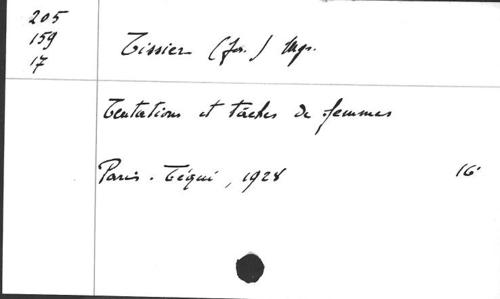 205
159
17
Tissier (Jos.) Mgr.
Tentations et tâches de femmes
Paris. Téqui, 1928 16°